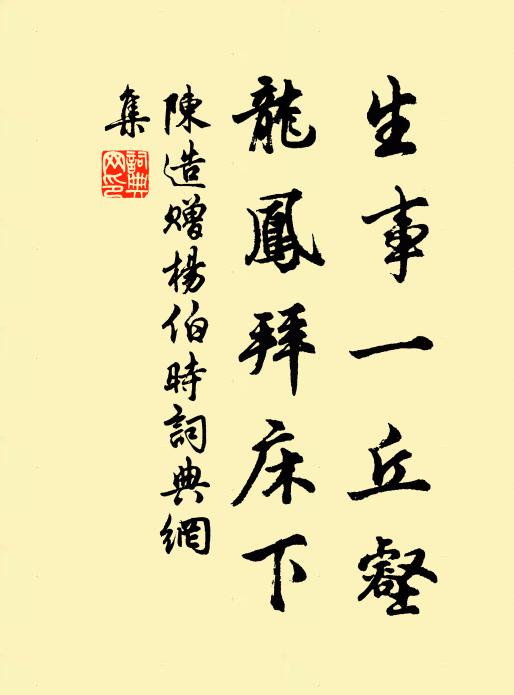 生事一丘壑
龍鳳拜床下
陳造贈楊伯時詞典網
集
詞典网印